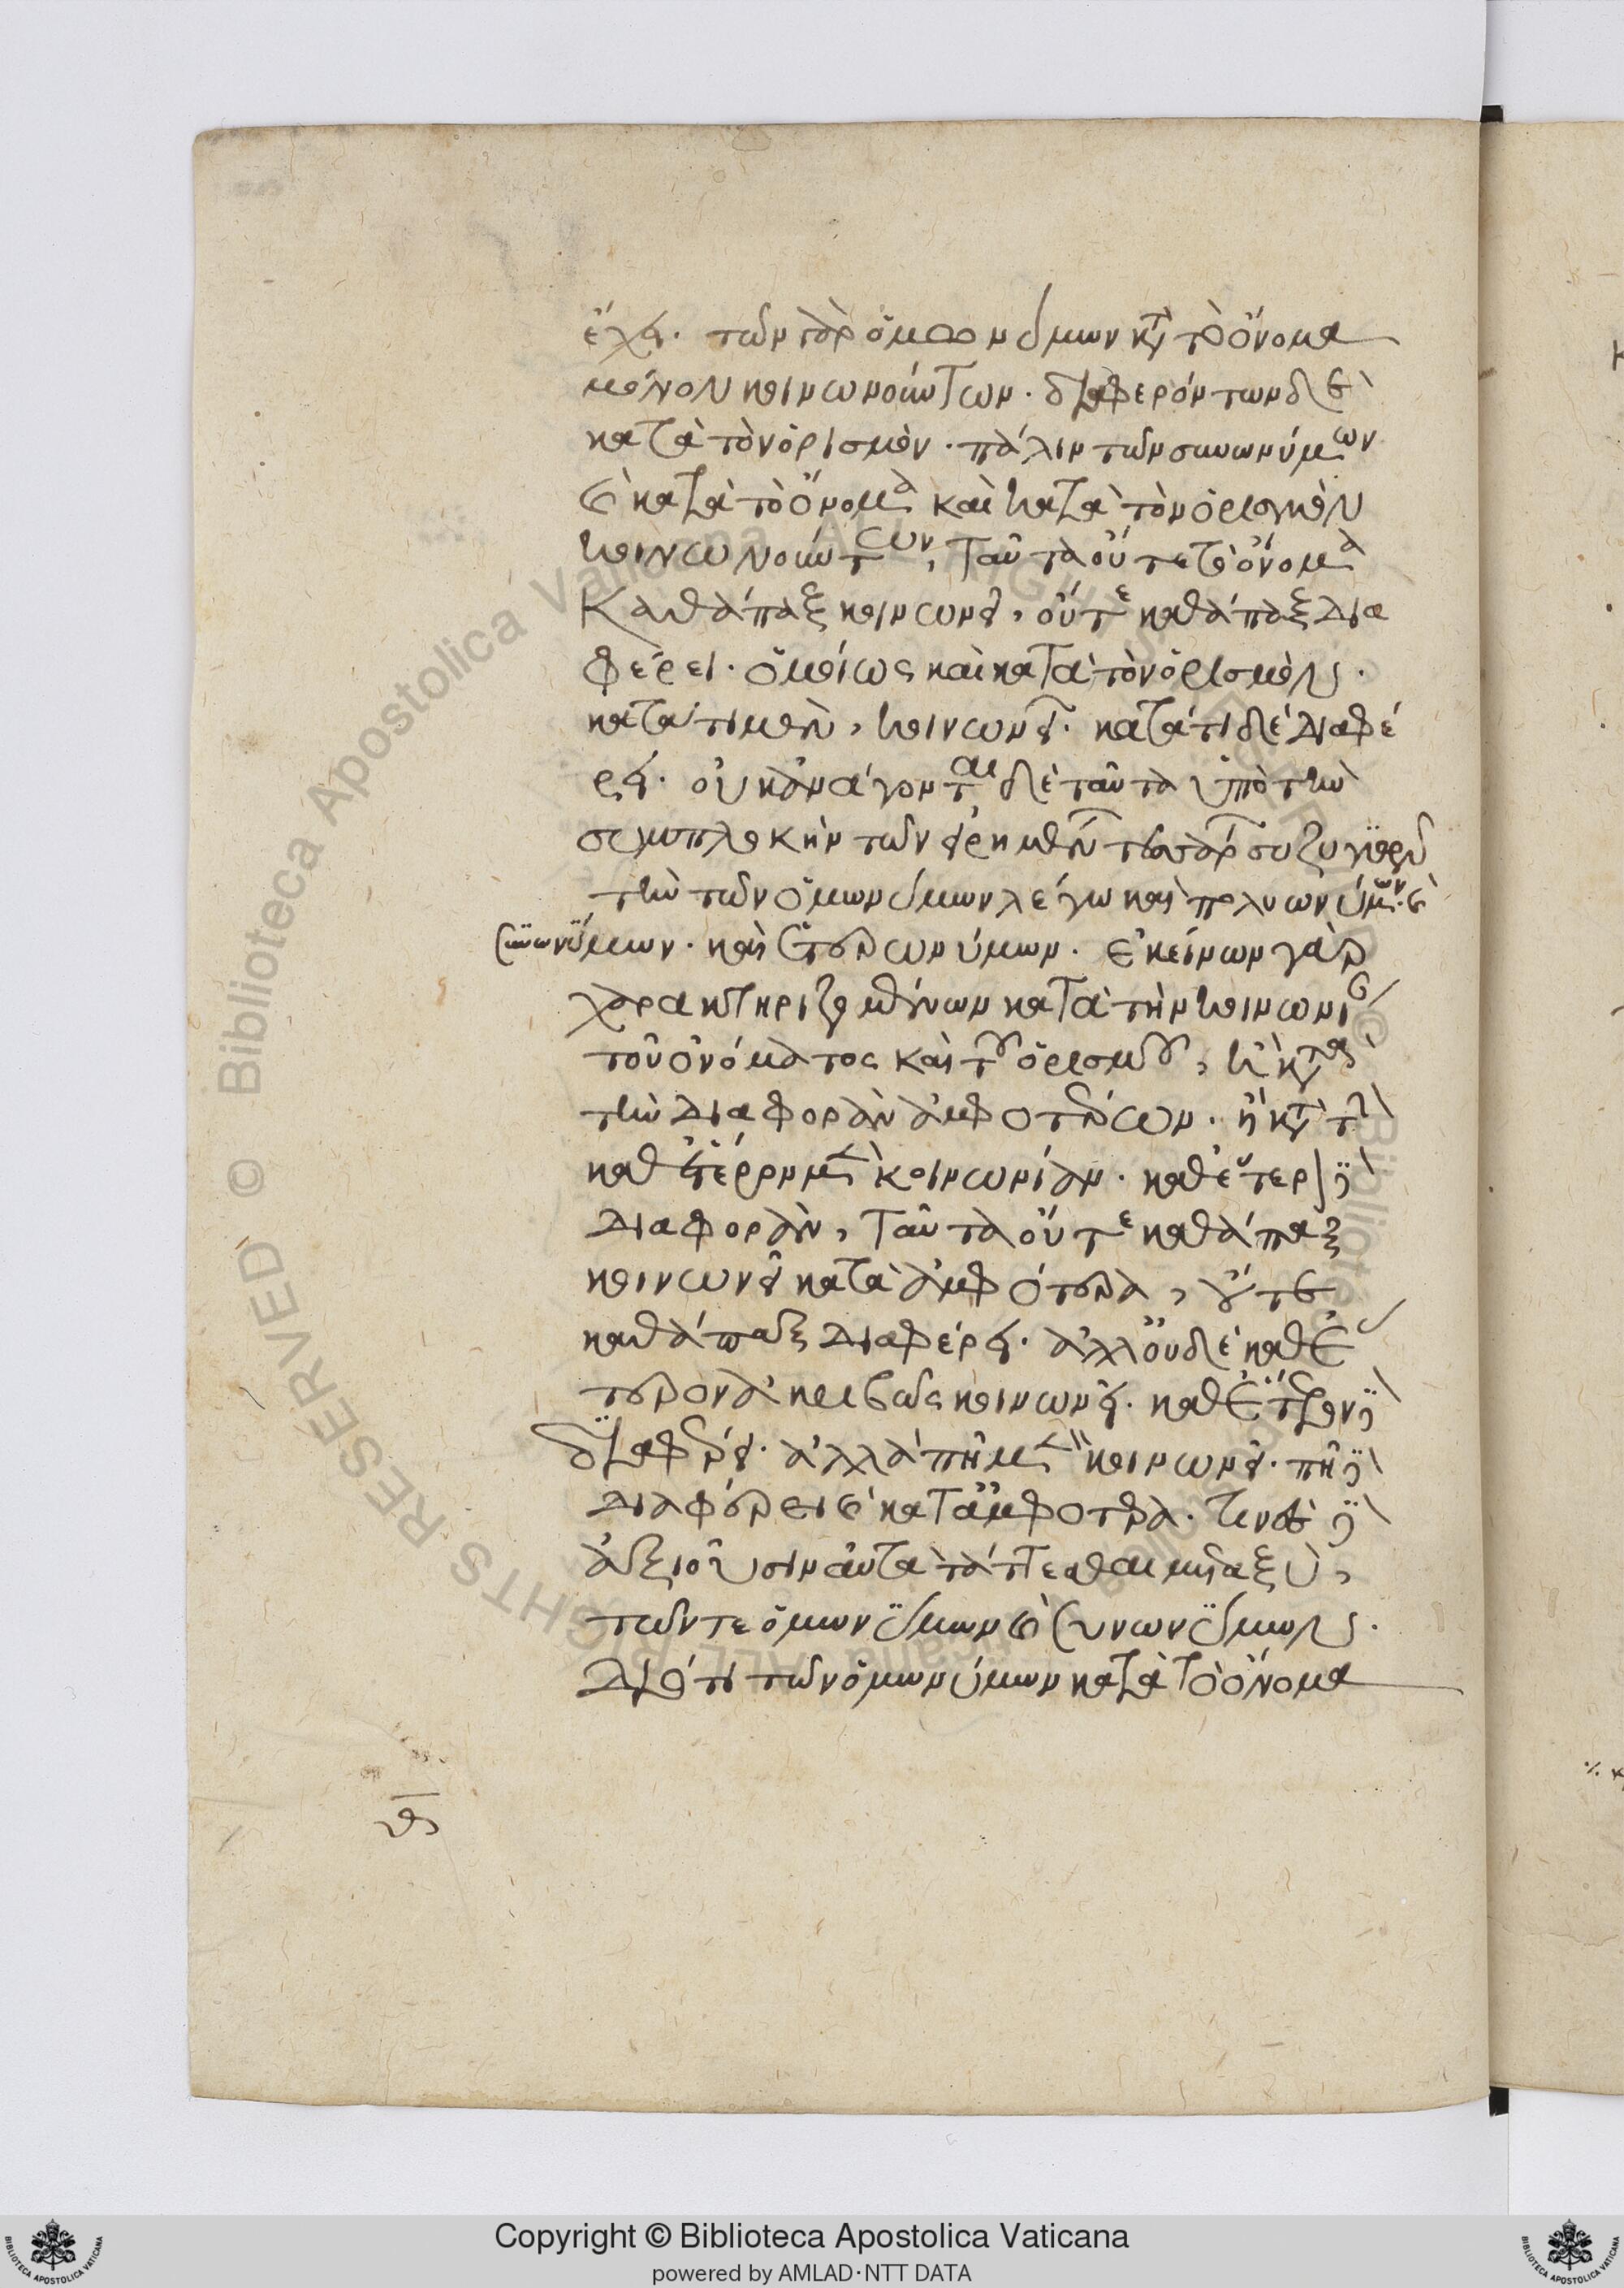 ἔχει. τῶν γὰρ ὁμωνύμων κατὰ τὸ ὄνομα
μόνον κοινωνούντων. διαφερόντων δὲ
κατὰ τὸν ὁρισμόν. πάλιν τῶν συνωνύμων
καὶ κατὰ τὸ ὄνομα καὶ κατὰ τὸν ὁρισμὸν
κοινωνούντων, ταῦτα οὔτε τὸ ὄνομα
καθάπαξ κοινωνεῖ, οὔτε καθάπαξ δια
φέρει. ὁμοίως καὶ κατὰ τὸν ὁρισμόν.
κατὰ τὶ μὲν, κοινωνεῖ. κατὰ τὶ δὲ διαφέ
ρει. οὐκ ἀνάγονται δὲ ταῦτα ὑπὸ τὴν
συμπλοκὴν τῶν εἰρημένων τεσσάρων συζυγιῶν
τὴν τῶν ὁμωνύμων λέγω καὶ πολυωνύμων. καὶ
συνωνύμων. καὶ ἑτερωνύμων. ἐκείνων γὰρ
χαρακτηριζομένων κατὰ τὴν κοινωνίαν
τοῦ ὀνόματος καὶ τοῦ ὁρισμοῦ, ἢ κατὰ
τὴν διαφορὰν ἀμφοτέρων. ἢ κατὰ τὴν
καθ ἕτερον μὲν κοινωνίαν. καθ ἕτερον δὲ
διαφορὰν, ταῦτα οὔτε καθάπαξ
κοινωνεῖ κατὰ ἀμφότερα, οὔτε
καθάπαξ διαφέρει. ἀλλ οὐδὲ καθ ἕ
τερον ἀκριβῶς κοινωνεῖ. καθ ἕτερον δὲ
διαφέρει. ἀλλὰ πῆ μὲν κοινωνεῖ. πῆ δὲ
διαφέρει καὶ κατ ἄμφότερα. τινὲς δὲ
ἀξιοῦσιν αὐτὰ τάττεσθαι μεταξὺ,
τῶν τε ὁμωνύμων καὶ συνωνύμων.
διότι τῶν ὁμωνύμων κατὰ τὸ ὄνομα
Copyright © Biblioteca Apostolica Vaticana
powered by AMLAD·NTT DATA